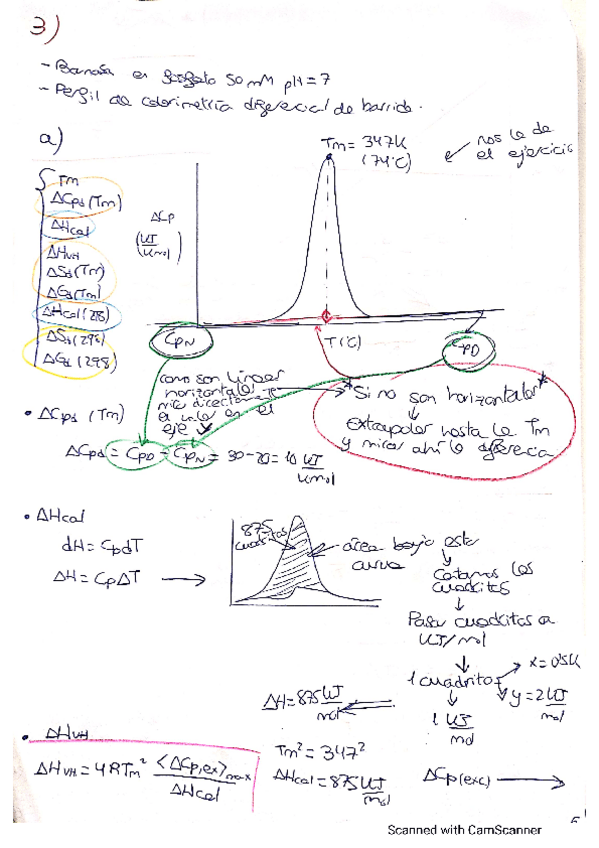 3)
- Barnasa en fosfato 50 mM pH = 7
- Perfil de calorimetría diferencial de barrido.
a)
Tm = 347K
(74°C)
nos la da
el ejercicio
Tm
ΔCpd (Tm)
ΔHcal
ΔHVH
ΔSd (Tm)
ΔGd (Tm)
ΔHcal (298)
ΔSd (298)
ΔGd (298)
ΔCp
(KJ/Kmol)
CpN
T(°C)
CpD
como son líneas
horizontales
miro directamente
el valor en el
eje
* Si no son horizontales *
Extrapolar hasta la Tm
y mirar ahí la diferencia
• ΔCpd (Tm)
ΔCpd = CpD - CpN = 30 - 20 = 10 KJ/Kmol
• ΔHcal
dH = CpdT
ΔH = CpΔT →
875
cuadritos
área bajo esta
curva
Contamos los
cuadritos
Pasar cuadritos a
KJ/mol
1 cuadrito
x = 0'5K
y = 2 KJ/mol
1 KJ/mol
ΔH = 875 KJ/mol
• ΔHVH
ΔHVH = 4RTm² <ΔCp,ex>max / ΔHcal
Tm² = 347²
ΔHcal = 875 KJ/mol
ΔCp(exc) →
Scanned with CamScanner